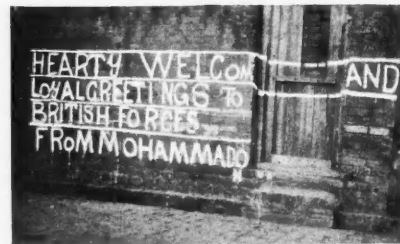 HEARTY WELCOM AND
LOYAL GREETINGS TO
BRITISH FORCES
FROM MOHAMMADO